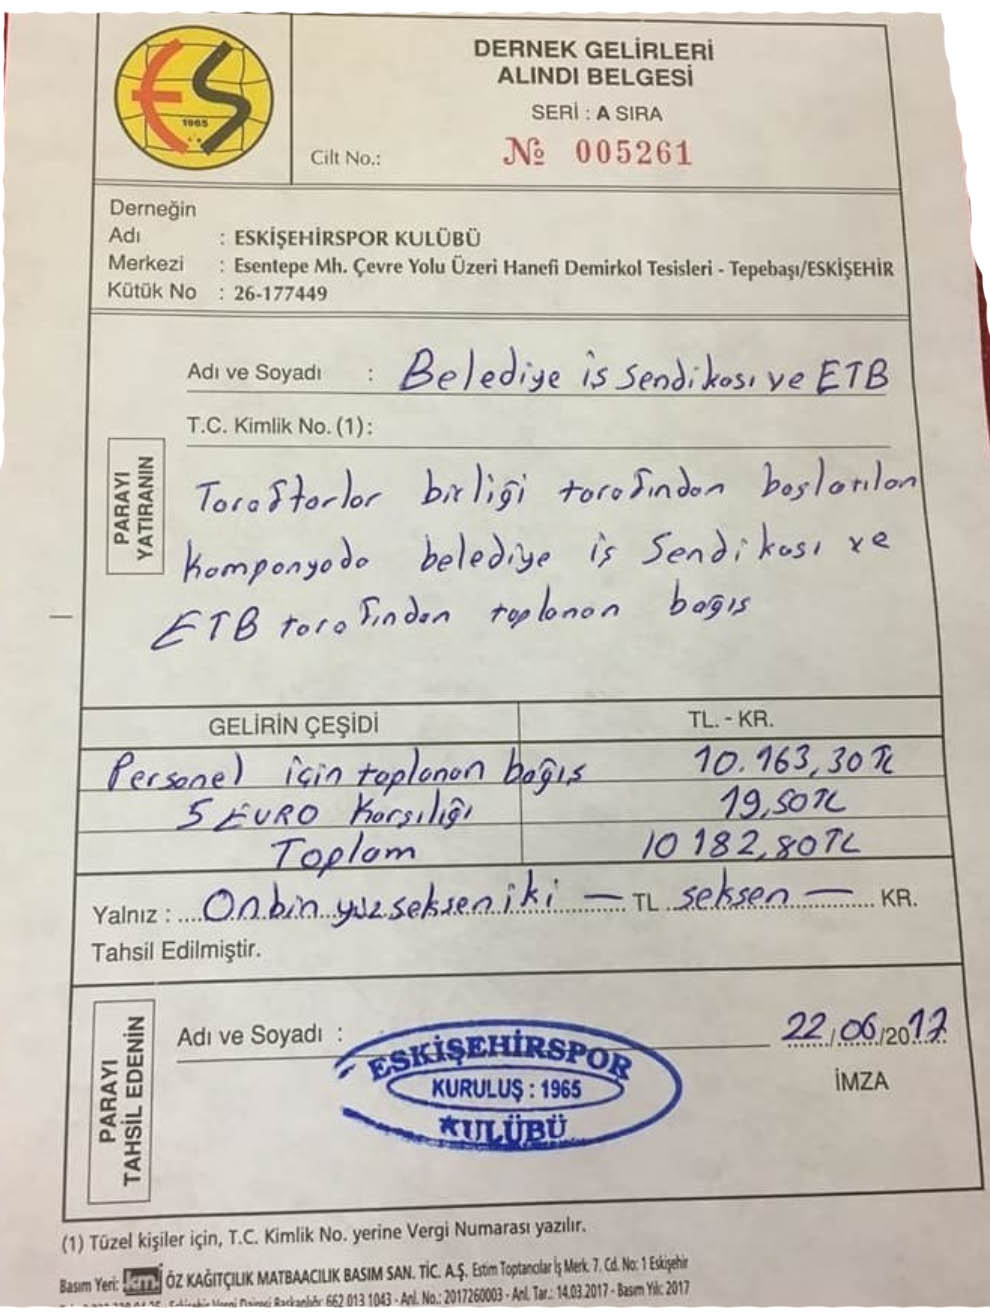 ES
1965
DERNEK GELİRLERİ
ALINDI BELGESİ
SERİ : A SIRA
Cilt No.:
№ 005261
Derneğin
Adı : ESKİŞEHİRSPOR KULÜBÜ
Merkezi : Esentepe Mh. Çevre Yolu Üzeri Hanefi Demirkol Tesisleri - Tepebaşı/ESKİŞEHİR
Kütük No : 26-177449
PARAYI
YATIRANIN
Adı ve Soyadı : Belediye iş Sendikası ve ETB
T.C. Kimlik No. (1):
Taraftarlar birliği tarafından başlatılan
kampanyada belediye iş Sendikası ve
ETB tarafından toplanan bağış
GELİRİN ÇEŞİDİ TL. - KR.
Personel için toplanan bağış 10.163,30 TL
5 EURO Karşılığı 19,50 TL
Toplam 10 182,80 TL
Yalnız : Onbin yüz seksen iki — TL seksen — KR.
Tahsil Edilmiştir.
PARAYI
TAHSİL EDENİN
Adı ve Soyadı :
22/06/2017
İMZA
ESKİŞEHİRSPOR
KURULUŞ : 1965
KULÜBÜ
(1) Tüzel kişiler için, T.C. Kimlik No. yerine Vergi Numarası yazılır.
Basım Yeri: km ÖZ KAĞITÇILIK MATBAACILIK BASIM SAN. TİC. A.Ş. Estim Toptancılar İş Merk. 7. Cd. No: 1 Eskişehir
662 013 1043 - Anl. No.: 2017260003 - Anl. Tar.: 14.03.2017 - Basım Yılı: 2017